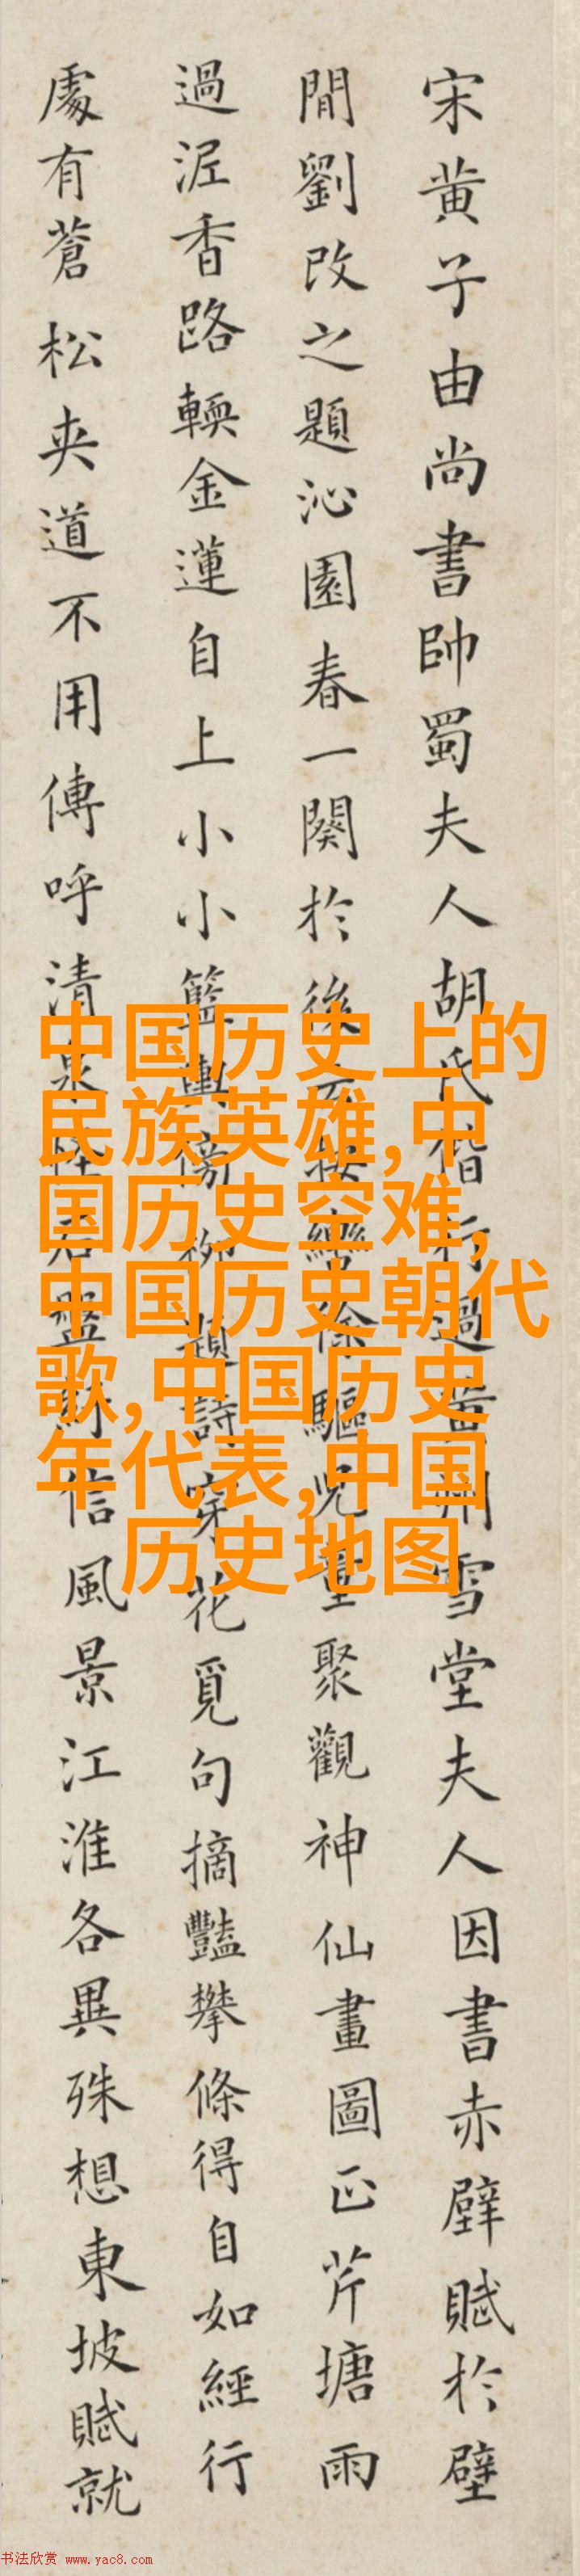 宋黄子由尚書帥蜀夫人胡氏偕行過黄州雪堂夫人因書赤壁賦於壁
間劉改之題沁園春一闋於後云按轡徐驅兒童聚觀神仙畫圖正芹塘雨
過泥香路輭金蓮自上小小籃輿傍柳題詩穿花覓句摘豔攀條得自如經行
處有蒼松夾道不用傳呼清泉怪石盤紆信風景江淮各異殊想東坡賦就
中国历史上的
民族英雄,中
国历史空难,
中国历史朝代
歌,中国历史
年代表,中国
历史地图
书法欣赏 www.yac8.com